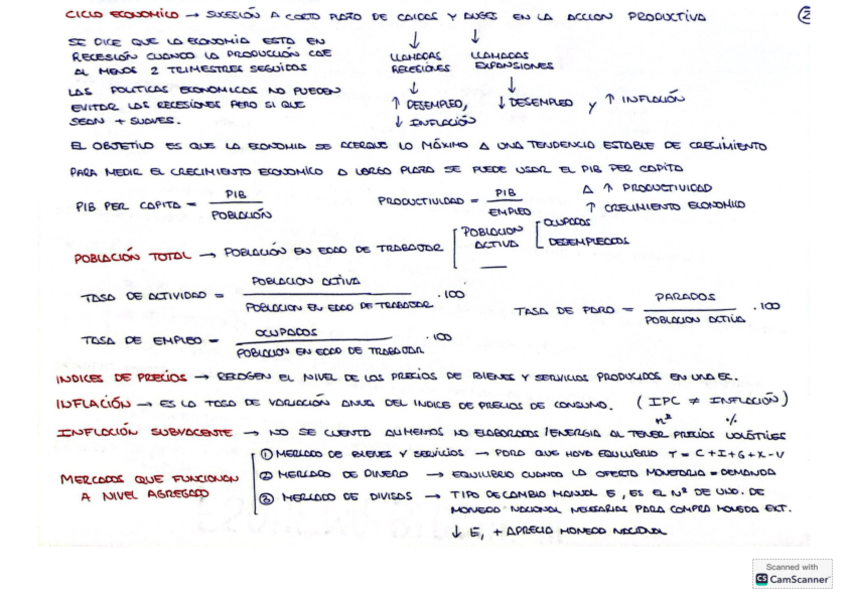 CICLO ECONOMICO → SUCESIÓN A CORTO PLAZO DE CAIDAS Y AUGES EN LA ACCION PRODUCTIVA
2
SE DICE QUE LA ECONOMÍA ESTA EN
RECESIÓN CUANDO LA PRODUCCIÓN CAE
AL MENOS 2 TRIMESTRES SEGUIDOS
LAS POLITICAS ECONOMICAS NO PUEDEN
EVITAR LAS RECESIONES PERO SI QUE
SEAN + SUAVES.
↓ ↓
LLAMADAS RECESIONES
LLAMADAS EXPANSIONES
↓ ↓
↑ DESEMPLEO,
↓ INFLACIÓN
↓ DESEMPLEO y ↑ INFLACIÓN
EL OBJETIVO ES QUE LA ECONOMIA SE ACERQUE LO MÁXIMO A UNA TENDENCIA ESTABLE DE CRECIMIENTO
PARA MEDIR EL CRECIMIENTO ECONOMICO A LARGO PLAZO SE PUEDE USAR EL PIB PER CAPITA
PIB PER CAPITA = PIB / POBLACIÓN
PRODUCTIVIDAD = PIB / EMPLEO
Δ ↑ PRODUCTIVIDAD
↑ CRECIMIENTO ECONOMICO
POBLACIÓN TOTAL → POBLACIÓN EN EDAD DE TRABAJAR [ POBLACION ACTIVA [ OCUPADOS
DESEMPLEADOS
TASA DE ACTIVIDAD = POBLACION ACTIVA / POBLACION EN EDAD DE TRABAJAR · 100
TASA DE PARO = PARADOS / POBLACION ACTIVA · 100
TASA DE EMPLEO = OCUPADOS / POBLACION EN EDAD DE TRABAJAR · 100
INDICES DE PRECIOS → RECOGEN EL NIVEL DE LOS PRECIOS DE BIENES Y SERVICIOS PRODUCIDOS EN UNA EC.
INFLACIÓN → ES LA TASA DE VARIACIÓN ANUA DEL INDICE DE PRECIOS DE CONSUMO. ( IPC ≠ INFLACIÓN )
nº %
INFLACIÓN SUBYACENTE → NO SE CUENTA AUMENTOS NO ELABORADOS / ENERGIA AL TENER PRECIOS VOLÁTILES
MERCADOS QUE FUNCIONAN
A NIVEL AGREGADO
① MERCADO DE BIENES Y SERVICIOS → PARA QUE HAYA EQUILIBRIO Y = C + I + G + X - V
② MERCADO DE DINERO → EQUILIBRIO CUANDO LA OFERTA MONETARIA = DEMANDA
③ MERCADO DE DIVISAS → TIPO DE CAMBIO E, ES EL Nº DE UND. DE
MONEDA NACIONAL NECESARIAS PARA COMPRA MONEDA EXT.
↓ E, + APRECIA MONEDA NACIONAL
Scanned with
CS CamScanner